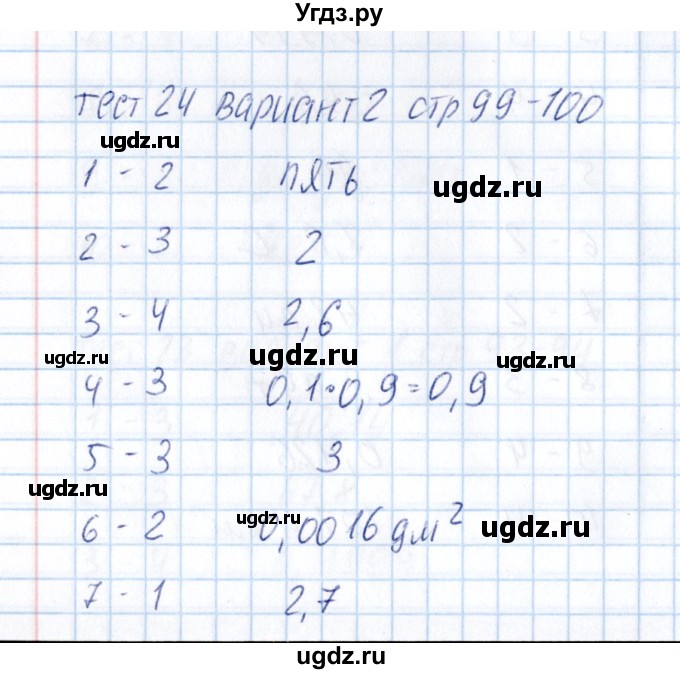 Угдз.ру
тест 24 вариант 2 стр 99-100
ugdz.ru
1 - 2 пять
ugdz.ru
2 - 3 2
3 - 4 2,6
ugdz.ru ugdz.ru ugdz.ru
4 - 3 0,1•0,9=0,9
5 - 3 3
ugdz.ru
6 - 2 0,0016 дм²
ugdz.ru ugdz.ru
7 - 1 2,7
ugdz.ru